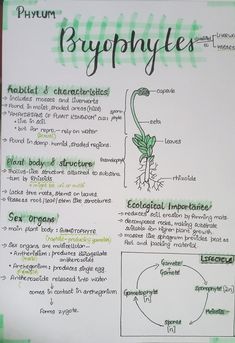 PHYLUM
Bryophytes
habitat & characteristics
→ Includes mosses and liverworts
→ Found in moist, shaded areas (hills)
→ "AMPHIBIANS OF PLANT KINGDOM"
• live in soil
• but for repro - rely on water
→ Found in damp, humid, shaded regions.
capsule
seta
leaves
rhizoids
Plant body & structure
→ thallus-like structure attached to
substratum by Rhizoids
→ lacks true roots, stems or leaves
→ Possess root/leaf/stem like structures.
Sex organs
→ main plant body: GAMETOPHYTE
→ Sex organs are multicellular-
• Antheridium: produces biflagellate
antherozoids
• Archegonium: produces single egg
→ Antherozoids released into water
↓
comes in contact in archegonium
↓
forms zygote.
Ecological Importance
→ reduces soil erosion by forming mats.
→ decomposes rocks, making substrate
suitable for higher plant growth.
→ mosses like sphagnum provides peat as
fuel and packing material.
LIFECYCLE
Gamete
Gamete
Sporophyte [2n]
Meiosis
spore
[n]
Gametophyte
[n]